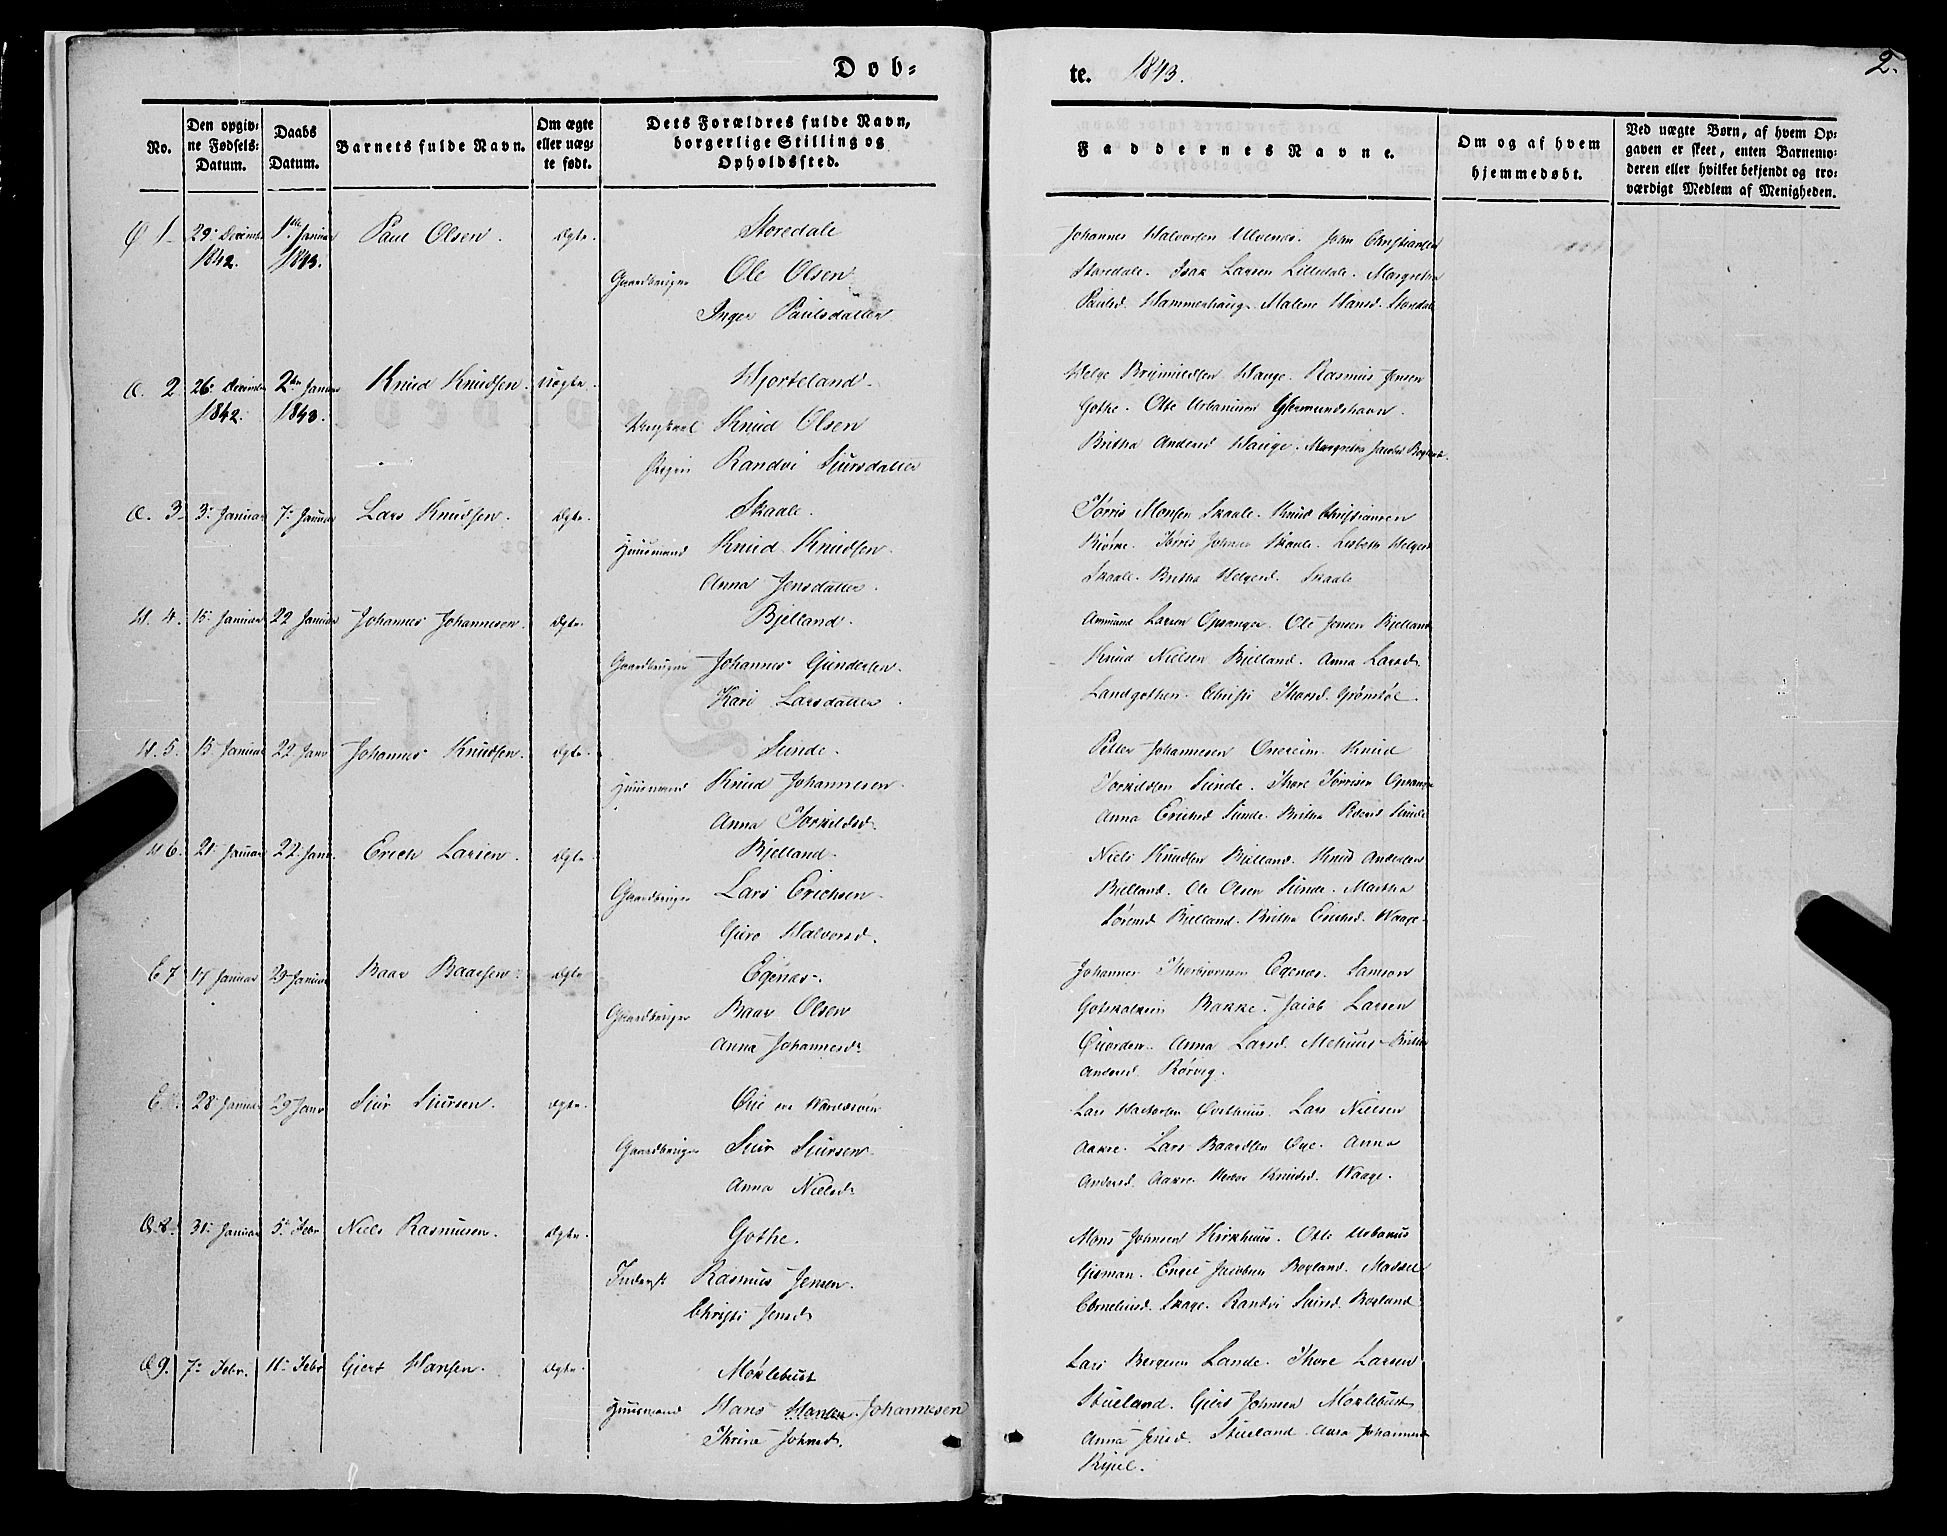 Dob=
te. 1843.
2.
No.
Den opgiv=
ne Fødsels=
Datum.
Daabs
Datum.
Barnets fulde Navn.
Om ægte
eller uæg=
te født.
Dets Forældres fulde Navn,
borgerlige Stilling og
Opholdssted.
Faddernes Navne.
Om og af hvem
hjemmedøbt.
Ved uægte Børn, af hvem Op=
gaven er skeet, enten Barnemo=
deren eller hvilket bekjendt og tro=
værdigt Medlem af Menigheden.
1 29. Decembr 1842. 1ste Januar 1843. Paul Olsen. Ægte.
Storedale
Gaardbruger Ole Olsen
Inger Paulsdatter
Johannes Halvorsen Ulvenes. John Christiansen
Storedale. Isak Larsen Lilledale. Margretha
Paulsd. Hammerhaug. Malene Hansd. Storedale
2 26. December 1842. 2den Januar 1843. Knud Knudsen. Uægte.
Hjorteland.
Knud Olsen
Randvi Sjursdatter
Helge Hauge. Rasmus Jensen
Gothe. Otte Urbanusen
Britha Andersd. Hauge. Margretha Jacobsd.
3. 3. Januar 7. Januar Lars Knudsen. Ægte.
Skaale.
Huusmand Knud Knudsen.
Anna Jensdatter.
Tørris Monsen Skaale. Knud Christiansen
Bjørke. Tørris Johnsen Skaale. Lisbeth Helgesd.
Skaale. Britha Helgesd. Skaale
4. 15. Januar 22 Januar Johannes Johannesen. Ægte.
Bjelland.
Gaardbruger Johannes Gundersen.
Kari Larsdatter.
Ammund Larsen Opsanger. Ole Jensen Bjelland
Knud Nielsen Bjelland. Anna Larsd.
Landgothen. Christi Thorsd. Grønstøl
5. 15 Januar 22 Janr Johannes Knudsen. Ægte.
Sunde.
Huusmand Knud Johannesen.
Anna Torkildsd.
Petter Johannesen Oneheim. Knud
Torkildsen Sunde. Thore Tørrisen Opsanger
Anna Erichsd Sunde. Britha Pedersd Sunde
6. 21. Januar 22. Janr. Erich Larsen. Ægte.
Bjelland.
Gaardbruger Lars Erichsen.
Guro Halvorsd.
Niels Knudsen Bjelland. Knud Andersen
Bjelland. Ole Olsen Sunde. Martha
Sørensd Bjelland. Britha Erichsd. Waage
7 14 Januar 29 Januar Baar Baarsen. Ægte
Egenæs.
Gaardbruger Baar Olsen
Anna Johannesdr
Johannes Thorbjørnsen Egenæs. Samson
Gotskalksen Bakke. Jacob Larsen
Anna Larsd. Mehuus. Britha
Andersd. Rørvig.
28. Januar 29 Janr Sjur Sjursen. Ægte.
Gaardbruger Sjur Sjursen.
Anna Nielsdr
Lars Qvithuus. Lars Nielsen
Aakre. Lars Baardsen Øie. Anna
Andersd. Aakre. Knudsd. Waage.
31. Januar 5. Febr. Niels Rasmusen. Ægte.
Gothe.
Inderst Rasmus Jensen.
Christi Jensd.
Mons Johnsen Kirkhuus. Otte Urbanus
Gisman. Engel Jacobsen Røyland. Madsel
Corneliusd. Skage. Randvi Sjursd. Røyland
9. 7. Febr. 11. Febr Giert Hansen. Ægte.
Møklebust
Huusmand Hans Hansen Johannesen
Thrine Johnsd.
Lars Børgesen Lande. Thore Larsen
Stueland. Giert Johnsen Møklebust
Anna Jensd. Stueland. Anna Johannesd